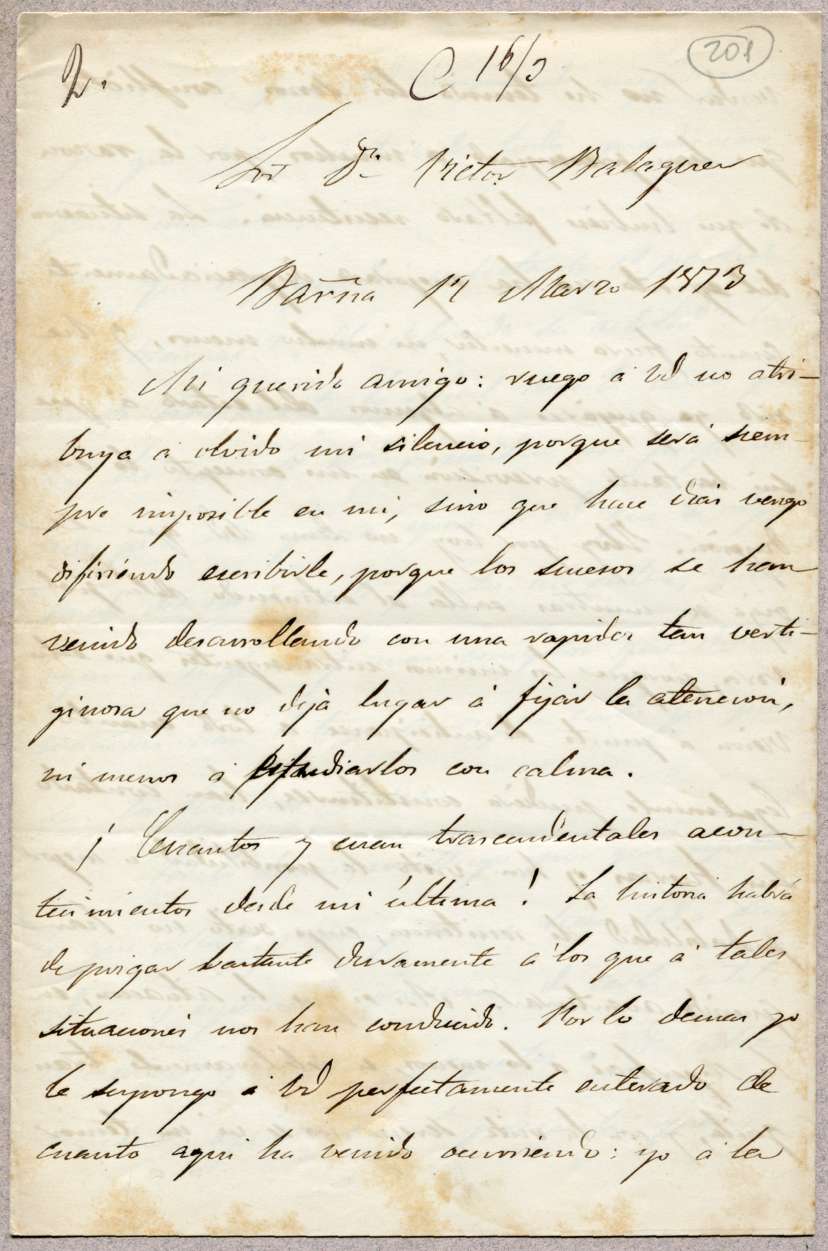 2.
C 16/3
201
Sor Dn Victor Balaguer
Barña 12 Marzo 1873
Mi querido amigo: ruego á Vd no atri-
buya á olvido mi silencio, porque será siem-
pre imposible en mi, sino que hace dias vengo
difiriendo escribirle, porque los sucesos se han
venido desarrollando con una rapidez tan verti-
ginosa que no deja lugar á fijar la atencion,
ni menos á estudiarlos con calma.
¡Cuantos y cuan trascendentales acon-
tecimientos desde mi última! La historia habrá
de juzgar bastante duramente á los que á tales
situaciones nos han conducido. Por lo demas yo
le supongo á Vd perfectamente enterado de
cuanto aqui ha venido ocurriendo: yo á la